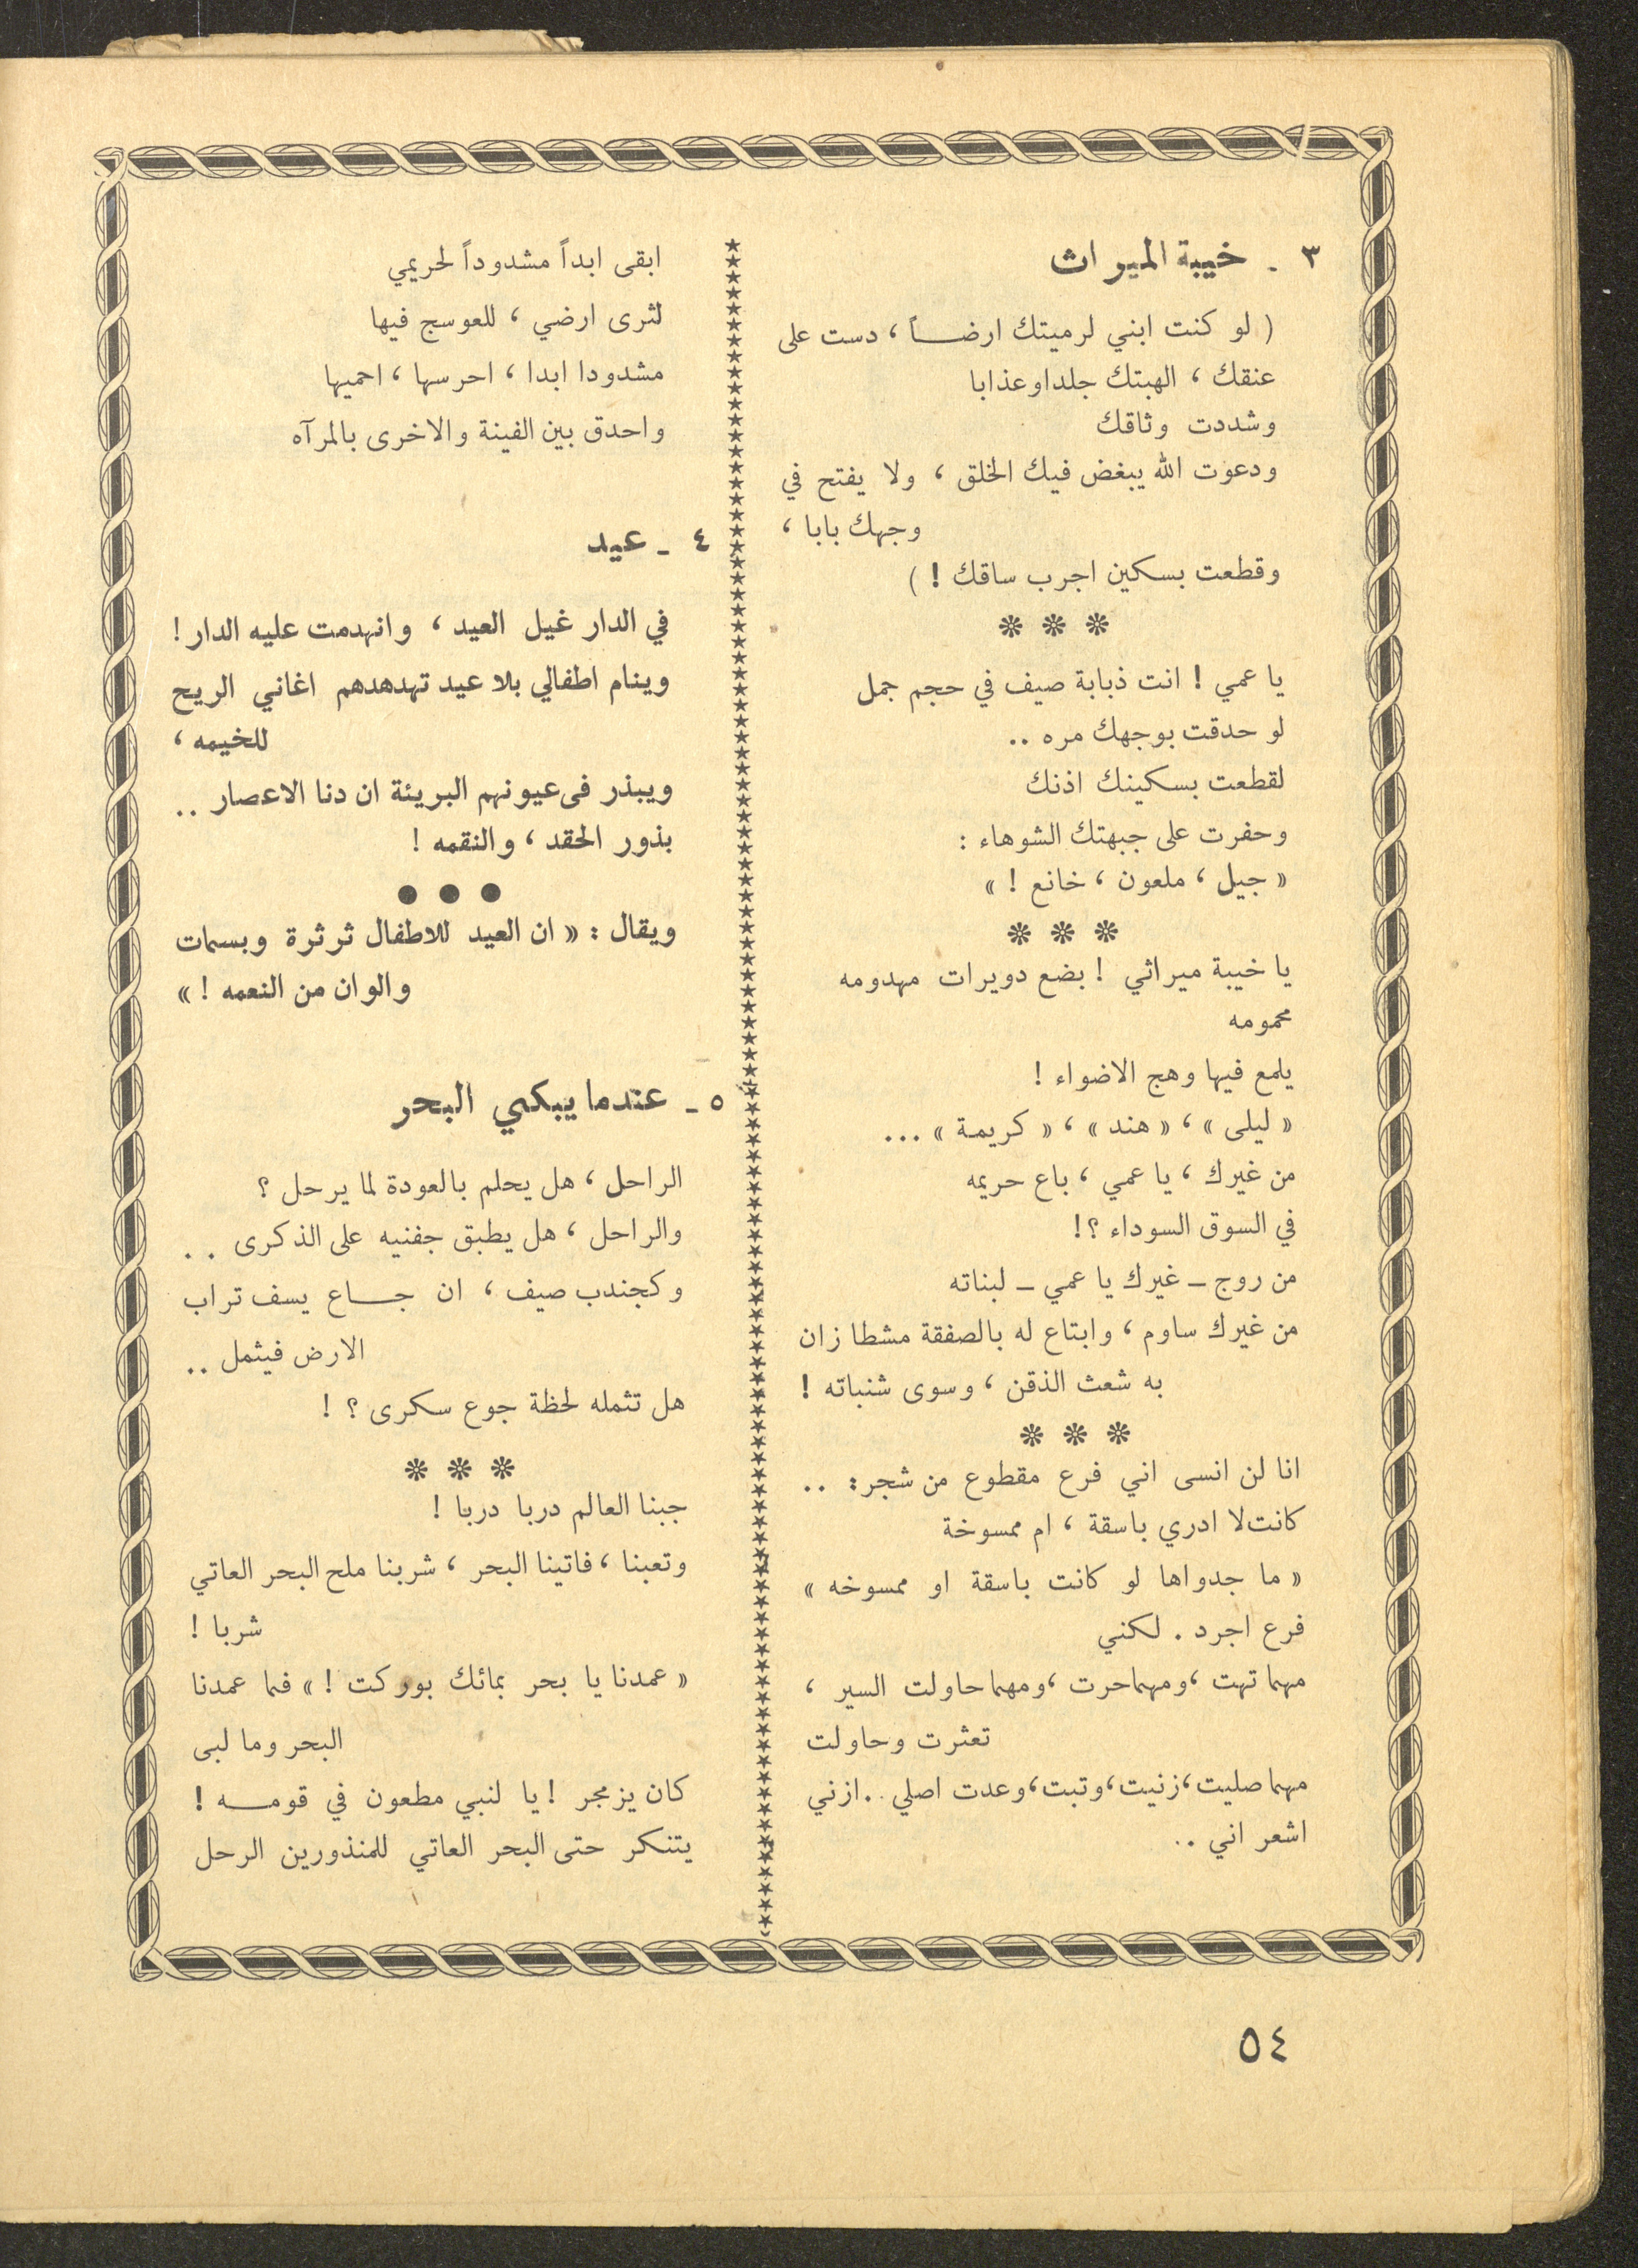 ٣ ـ خيبة الميراث
( لو كنت ابني لرميتك ارضـــاً ، دست على
عنقك ، الهبتك جلداوعذابا
وشددت وثاقك
ودعوت الله يبغض فيك الخلق ، ولا يفتح في
وجهك بابا ،
وقطعت بسكين اجرب ساقك ! )
❊ ❊ ❊
يا عمي ! انت ذبابة صيف في حجم جمل
لو حدقت بوجهك مره ..
لقطعت بسكينك اذنك
وحفرت على جبهتك الشوهاء :
« جيل ، ملعون ، خانع ! »
❊ ❊ ❊
يا خيبة ميراثي ! بضع دويرات مهدومه
محمومه
يلمع فيها وهج الاضواء !
« ليلى » ، « هند » ، « كريمة » ...
من غيرك ، يا عمي ، باع حريمه
في السوق السوداء ؟!
من روج ــ غيرك يا عمي ــ لبناته
من غيرك ساوم ، وابتاع له بالصفقة مشطا زان
به شعث الذقن ، وسوى شنباته !
❊ ❊ ❊
انا لن انسى اني فرع مقطوع من شجر: ..
كانت لا ادري باسقة ، ام ممسوخة
« ما جدواها لو كانت باسقة او ممسوخه »
فرع اجرد . لكني
مهما تهت ،ومهماحرت ،ومهماحاولت السير ،
تعثرت وحاولت
مهما صليت،زنيت،وتبت،وعدت اصلي ..ازني
اشعر اني ..
ابقى ابداً مشدوداً لحريمي
لثرى ارضي ، للعوسج فيها
مشدودا ابدا ، احرسها ، احميها
واحدق بين الفينة والاخرى بالمرآه
٤ ـ عيد
في الدار غيل العيد ، وانهدمت عليه الدار !
وينام اطفالي بلا عيد تهدهدهم اغاني الريح
للخيمه ،
ويبذر في عيونهم البريئة ان دنا الاعصار ..
بذور الحقد ، والنقمه !
● ● ●
ويقال : « ان العيد للاطفال ثرثرة وبسمات
والوان من النعمه ! »
٥ ـ عندما يبكي البحر
الراحل ، هل يحلم بالعودة لما يرحل ؟
والراحل ، هل يطبق جفنيه على الذكرى ..
وكجندب صيف ، ان جــــاع يسف تراب
الارض فيثمل ..
هل تثمله لحظة جوع سكرى ؟ !
❊ ❊ ❊
جبنا العالم دربا دربا !
وتعبنا ، فاتينا البحر ، شربنا ملح البحر العاتي
شربا !
« عمدنا يا بحر بمائك بوركت ! » فما عمدنا
البحر وما لبى
كان يزمجر ! يا لنبي مطعون في قومـــه !
يتنكر حتى البحر العاتي للمنذورين الرحل
٥٤